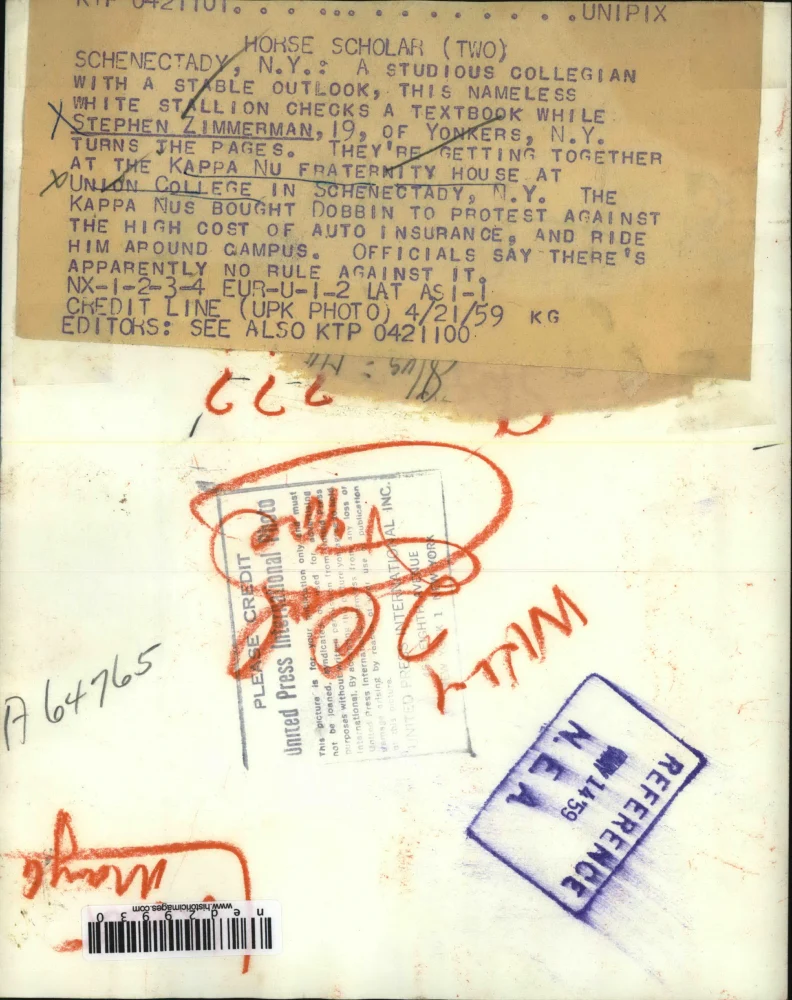 KTP 0421101. . . . ... . . . . . . .UNIPIX
HORSE SCHOLAR (TWO)
SCHENECTADY, N.Y.: A STUDIOUS COLLEGIAN
WITH A STABLE OUTLOOK, THIS NAMELESS
WHITE STALLION CHECKS A TEXTBOOK WHILE
X STEPHEN ZIMMERMAN, 19, OF YONKERS, N.Y.
TURNS THE PAGES. THEY'RE GETTING TOGETHER
AT THE KAPPA NU FRATERNITY HOUSE AT
X UNION COLLEGE IN SCHENECTADY, N.Y. THE
KAPPA NUS BOUGHT DOBBIN TO PROTEST AGAINST
THE HIGH COST OF AUTO INSURANCE, AND RIDE
HIM AROUND CAMPUS. OFFICIALS SAY THERE'S
APPARENTLY NO RULE AGAINST IT.
NX-1-2-3-4 EUR-U-1-2 LAT ASI-1
CREDIT LINE (UPK PHOTO) 4/21/59 KG
EDITORS: SEE ALSO KTP 0421100
PLEASE CREDIT
United Press International Photo
This picture is for your publication only and must
not be loaned, syndicated
purposes without written
International. By
United Press International
damage arising by
UNITED PRESS INTERNATIONAL INC.
AVENUE
NEW YORK
A 64765
REFERENCE
14 '59
N E A
www.historicimages.com
n e d 2 9 9 3 0